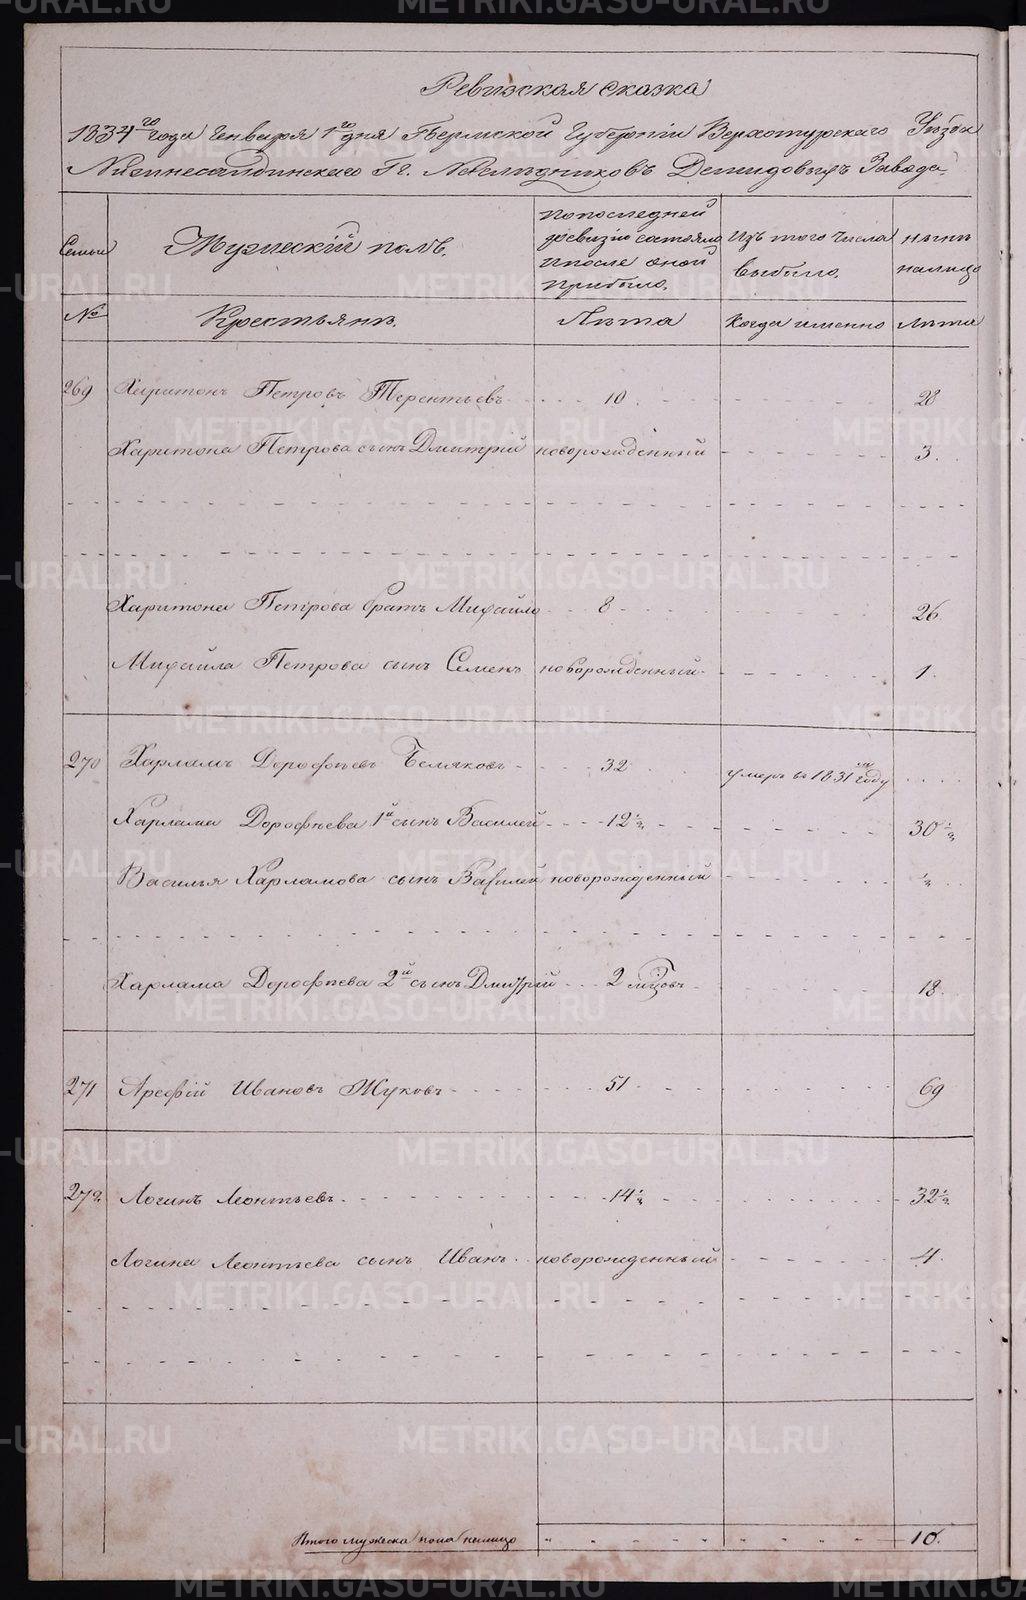 Ревизская сказка
1834го года Генваря 1го дня Пермской Губернии Верхотурскаго Уѣзда
Нижнесалдинскаго Гг. Наслѣдниковъ Демидовыхъ Завода
Семьи
Мужескій полъ.
По последней ревизіи состояло и после оной прибыло.
Изъ того числа выбыло.
нынѣ налицо
№
Крестьяне.
Лѣта
Когда именно
Лѣта
269 Харитонъ Петровъ Терентьевъ 10 28
Харитона Петрова сынъ Дмитрій новорожденный 3
Харитона Петрова братъ Михайло 8 26
Михайла Петрова сынъ Семенъ новорожденный 1
270 Харламъ Дорофѣевъ Беляковъ 32 умеръ въ 1831м году
Харлама Дорофѣева 1й сынъ Василей 12½ 30½
Василья Харламова сынъ Василей новорожденный ½
Харлама Дорофѣева 2й сынъ Дмитрій 2 18
271 Арефій Ивановъ Жуковъ 51 69
272 Логинъ Леонтьевъ 14½ 32½
Логина Леонтьева сынъ Иванъ новорожденный 4
Итого мужеска пола налицо 10.
METRIKI.GASO-URAL.RU